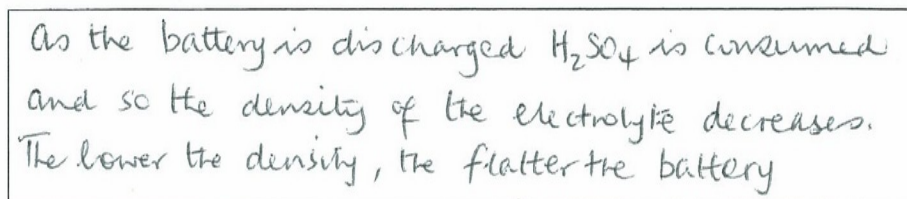 As the battery is discharged H₂SO₄ is consumed
and so the density of the electrolyte decreases.
The lower the density, the flatter the battery